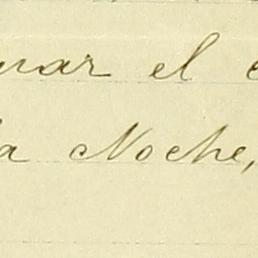 uar el
la Noche,